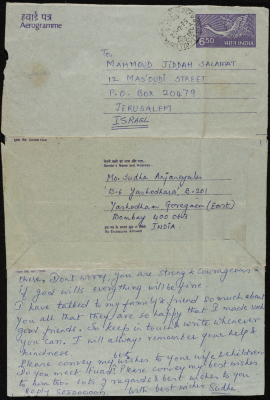 हवाई पत्र
Aerogramme
6.50
भारत INDIA
To:
MAHMOUD JIDDAH SALAMAT
12 MAS'OUDI STREET
P.O. BOX 20479
JERUSALEM
ISRAEL
Sender's Name and Address:-
Ms. Sudha
B-6 Yashodhara, B-201
Yashodham Goregaon (East)
Bombay 400 063
INDIA
No Enclosures Allowed
there, Don't worry, you are strong & courageous &
if good wills everything will be fine.
I have talked to my family & friend so much about
you all that they are so happy that I made such
good friends. So keep in touch & write whenever
you can. I will always remember your help &
kindness.
Please convey my best wishes to your wife & children
Do you meet Fuad? Please convey my best wishes
to him too. Lots of regards & best wishes to you
Reply Soooooon. With best wishes Sudha